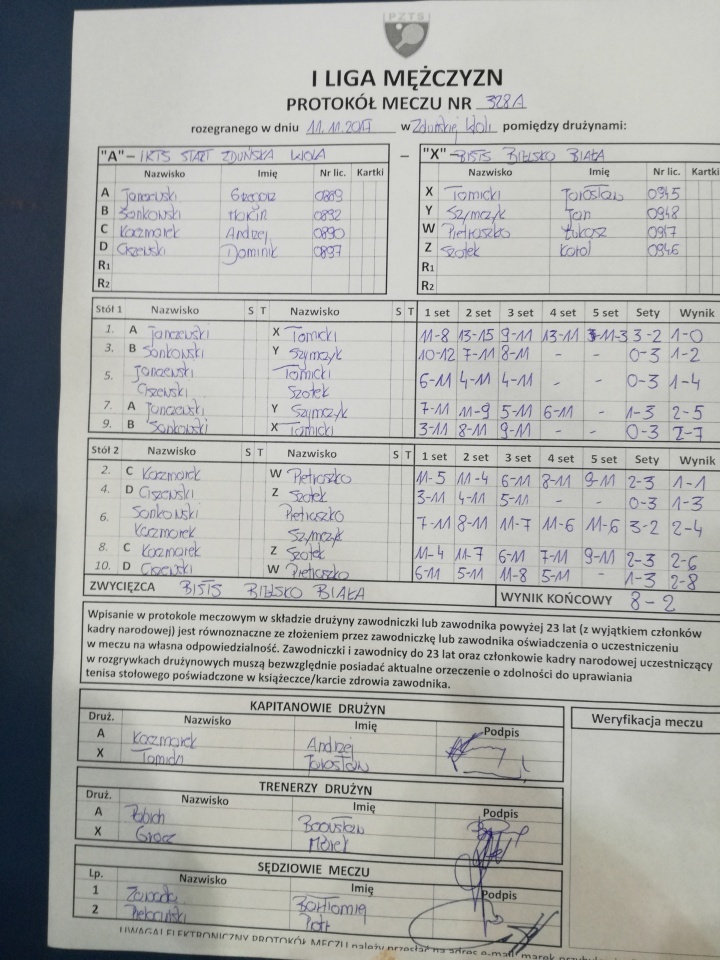 PZTS
I LIGA MĘŻCZYZN
PROTOKÓŁ MECZU NR 328A
rozegranego w dniu 11.11.2017 w Zduńskiej Woli pomiędzy drużynami:
"A" – IKTS START ZDUŃSKA WOLA – "X" – BISTS BIELSKO BIAŁA
Nazwisko Imię Nr lic. Kartki Nazwisko Imię Nr lic. Kartki
A Janczewski Grzegorz 0889 X Tomicki Jarosław 0945
B Sonkowski Marcin 0892 Y Szymczyk Jan 0948
C Kaczmarek Andrzej 0890 W Pietraszko Łukasz 0947
D Ciszewski Dominik 0897 Z Szotek Karol 0946
R1 R1
R2 R2
Stół 1 Nazwisko S T Nazwisko S T 1 set 2 set 3 set 4 set 5 set Sety Wynik
1. A Janczewski X Tomicki 11-8 13-15 9-11 13-11 11-3 3-2 1-0
3. B Sonkowski Y Szymczyk 10-12 7-11 8-11 - - 0-3 1-2
5. Janczewski Tomicki
Ciszewski Szotek 6-11 4-11 4-11 - - 0-3 1-4
7. A Janczewski Y Szymczyk 7-11 11-9 5-11 6-11 - 1-3 2-5
9. B Sonkowski X Tomicki 3-11 8-11 9-11 - - 0-3 2-7
Stół 2 Nazwisko S T Nazwisko S T 1 set 2 set 3 set 4 set 5 set Sety Wynik
2. C Kaczmarek W Pietraszko 11-5 11-4 6-11 8-11 9-11 2-3 1-1
4. D Ciszewski Z Szotek 3-11 4-11 5-11 - - 0-3 1-3
6. Sonkowski Pietraszko
Kaczmarek Szymczyk 7-11 8-11 11-7 11-6 11-6 3-2 2-4
8. C Kaczmarek Z Szotek 11-4 11-7 6-11 7-11 9-11 2-3 2-6
10. D Ciszewski W Pietraszko 6-11 5-11 11-8 5-11 - 1-3 2-8
ZWYCIĘZCA BISTS BIELSKO BIAŁA WYNIK KOŃCOWY 8-2
Wpisanie w protokole meczowym w składzie drużyny zawodniczki lub zawodnika powyżej 23 lat (z wyjątkiem członków
kadry narodowej) jest równoznaczne ze złożeniem przez zawodniczkę lub zawodnika oświadczenia o uczestniczeniu
w meczu na własna odpowiedzialność. Zawodniczki i zawodnicy do 23 lat oraz członkowie kadry narodowej uczestniczący
w rozgrywkach drużynowych muszą bezwzględnie posiadać aktualne orzeczenie o zdolności do uprawiania
tenisa stołowego poświadczone w książeczce/karcie zdrowia zawodnika.
KAPITANOWIE DRUŻYN Weryfikacja meczu
Druż. Nazwisko Imię Podpis
A Kaczmarek Andrzej
X Tomicki Jarosław
TRENERZY DRUŻYN
Druż. Nazwisko Imię Podpis
A Pabich Bogusław
X Gracz Marek
SĘDZIOWIE MECZU
Lp. Nazwisko Imię Podpis
1 Bartłomiej
2 Piotr
UWAGA! ELEKTRONICZNY PROTOKÓŁ MECZU należy przesłać na adres e-mail: marek